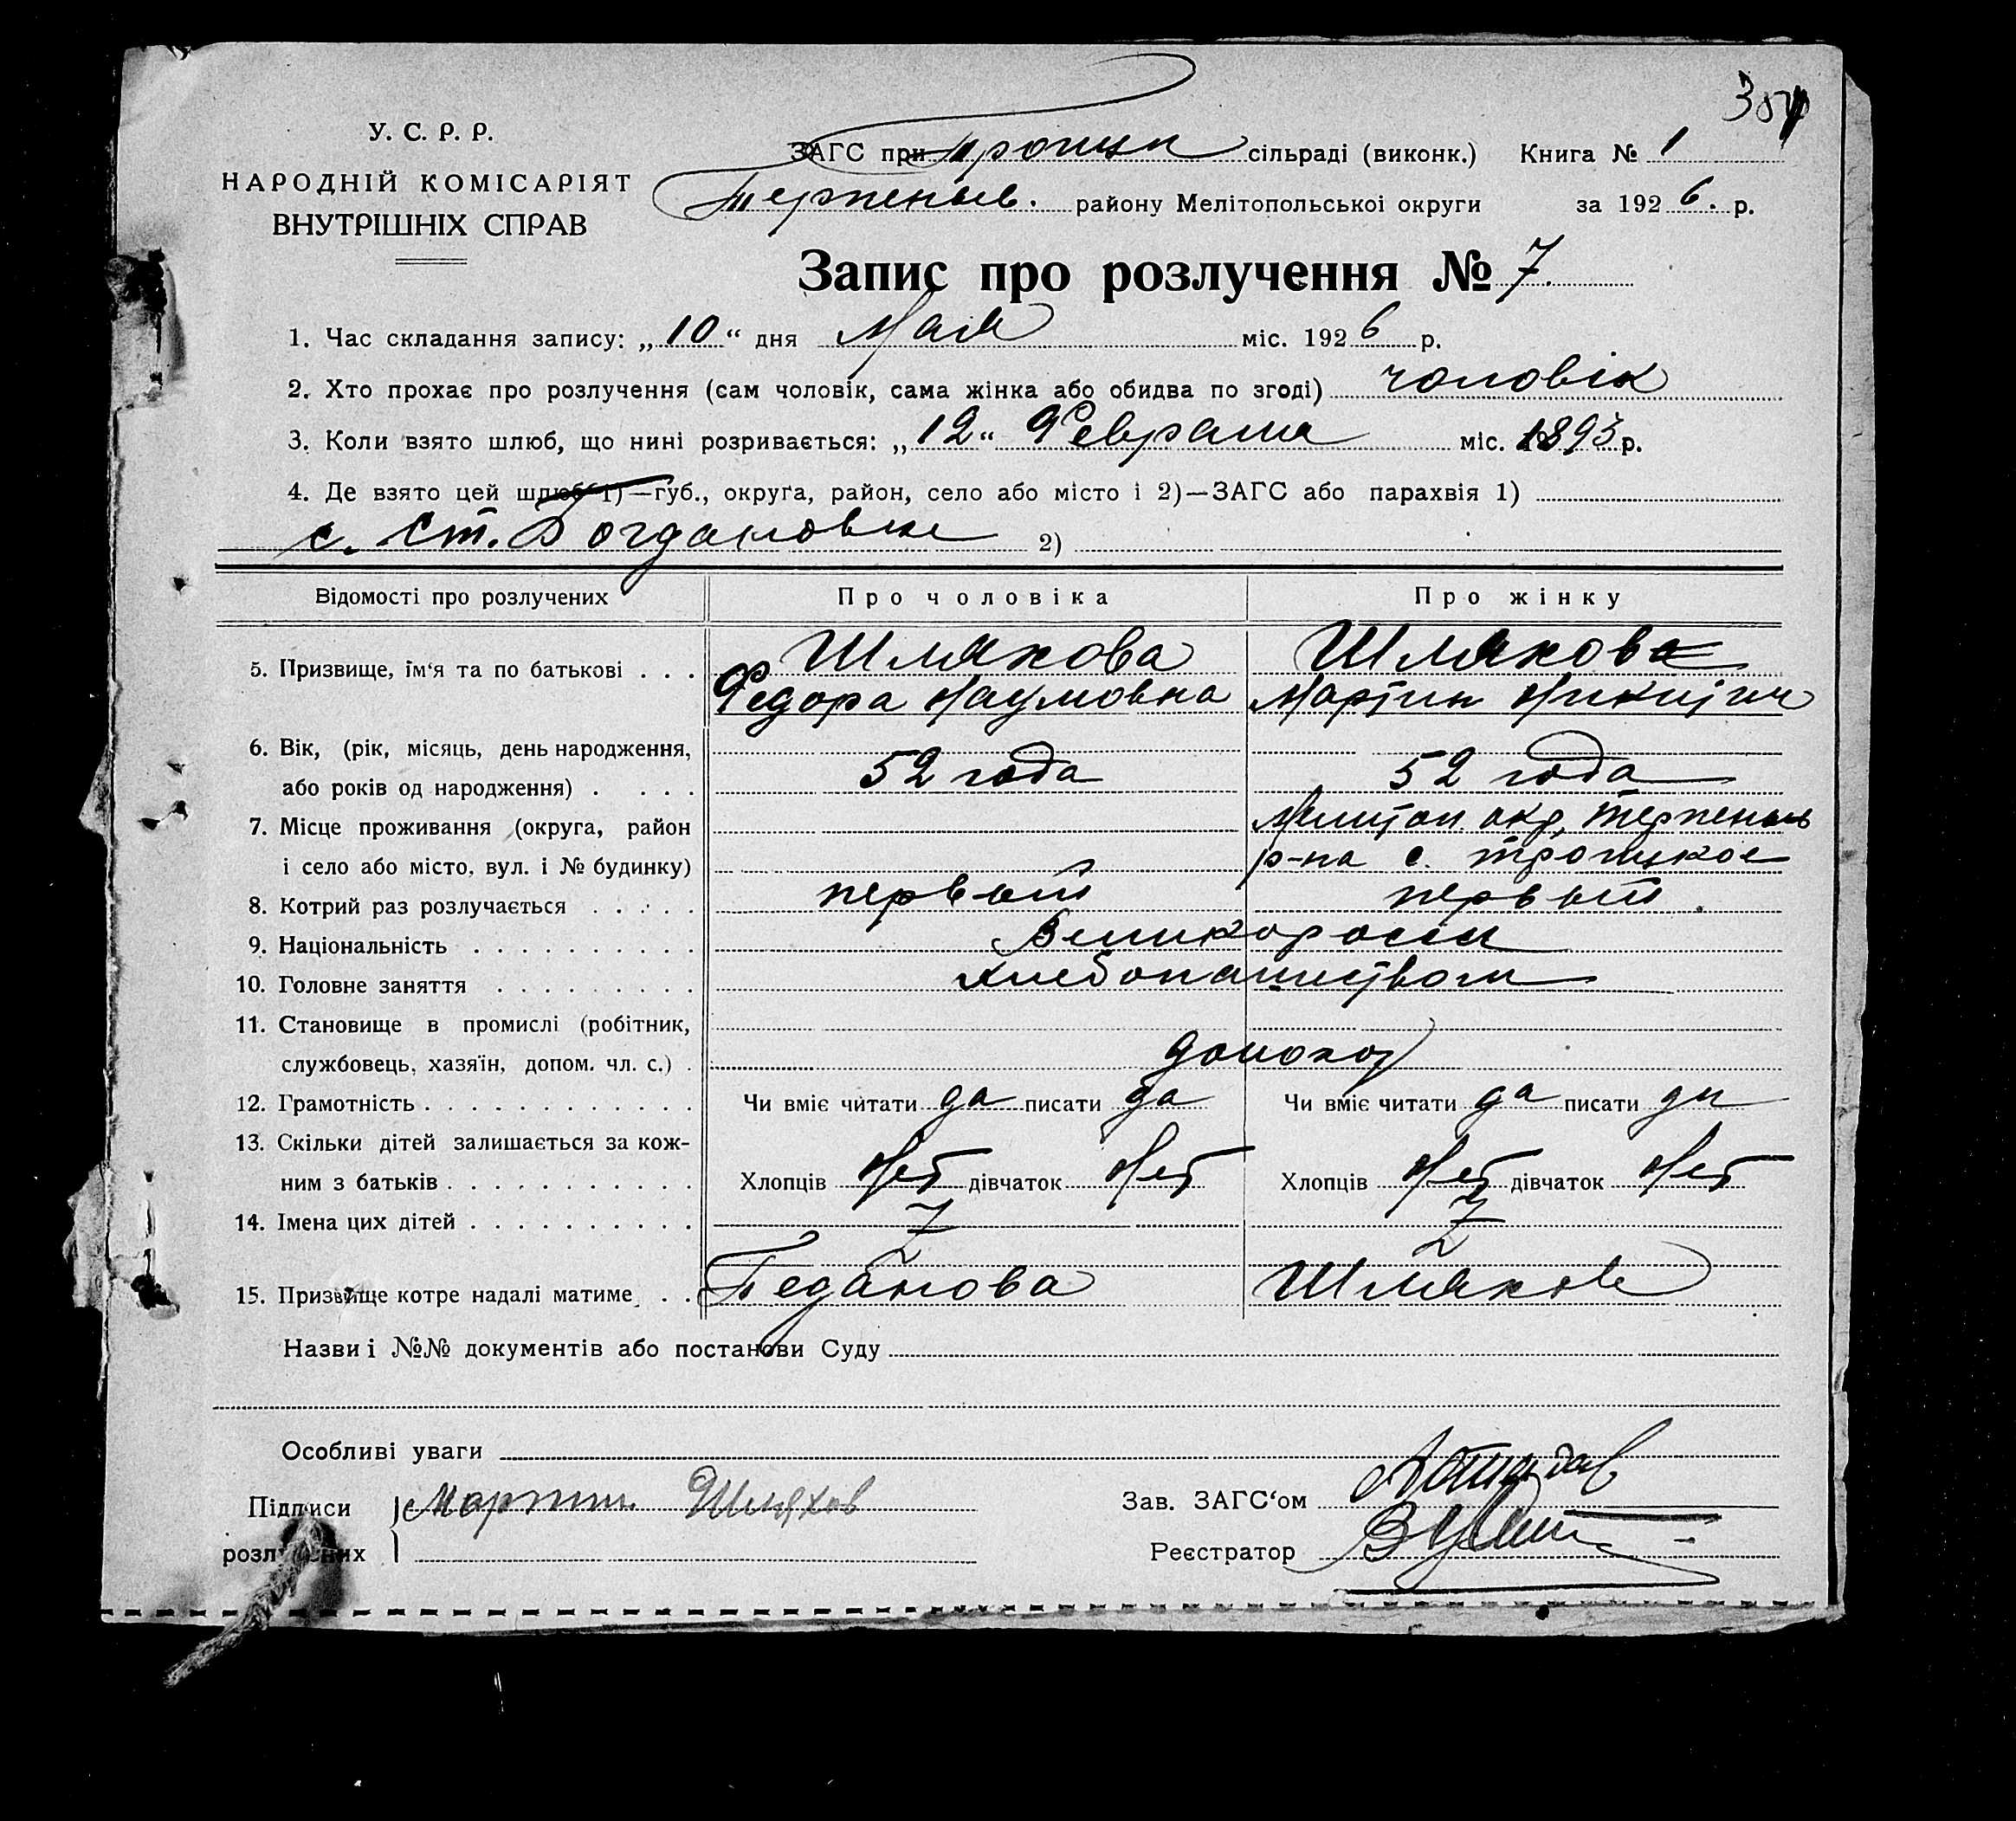 384
У. С. Р. Р.
НАРОДНІЙ КОМІСАРІЯТ
ВНУТРІШНІХ СПРАВ
ЗАГС при Троицк сільраді (виконк.) Книга № 1
Терпеньев. району Мелітопольської округи за 1926. р.
Запис про розлучення № 7.
1. Час складання запису: „10“ дня Мая міс. 1926 р.
2. Хто прохає про розлучення (сам чоловік, сама жінка або обидва по згоді) чоловік
3. Коли взято шлюб, що нині розривається: „12“ Февраля міс. 1893 р.
4. Де взято цей шлюб 1)—губ., округа, район, село або місто і 2)—ЗАГС або парахвія 1)
с. Ст. Богдановке 2)
Відомості про розлучених Про чоловіка Про жінку
5. Призвище, їм‘я та по батькові . . . Шляхова Шляхова
Федора Наумовна Мартин Никитич
6. Вік, (рік, місяць, день народження,
або років од народження) . . . . 52 года 52 года
7. Місце проживання (округа, район Мелитоп. окр, Терпеньев
і село або місто, вул. і № будинку) р-на с. Троицкое
8. Котрий раз розлучається . . . . . первый первый.
9. Національність . . . . . . . . . . Великороссы
10. Головне заняття . . . . . . . . . хлебопашеством
11. Становище в промислі (робітник,
службовець, хазяїн, допом. чл. с.) .
12. Грамотність . . . . . . . . . . . . Чи вміє читати да писати да Чи вміє читати да писати да
13. Скільки дітей залишається за кож-
ним з батьків . . . . . . . . . . . Хлопців Нет дівчаток Нет Хлопців Нет дівчаток Нет
14. Імена цих дітей . . . . . . . . . . Z Z
15. Призвище котре надалі матиме . . Беданова Шляхов
Назви і №№ документів або постанови Суду
Особливі уваги
Підписи Мартин Шляхов Зав. ЗАГС‘ом
розлучених Реєстратор